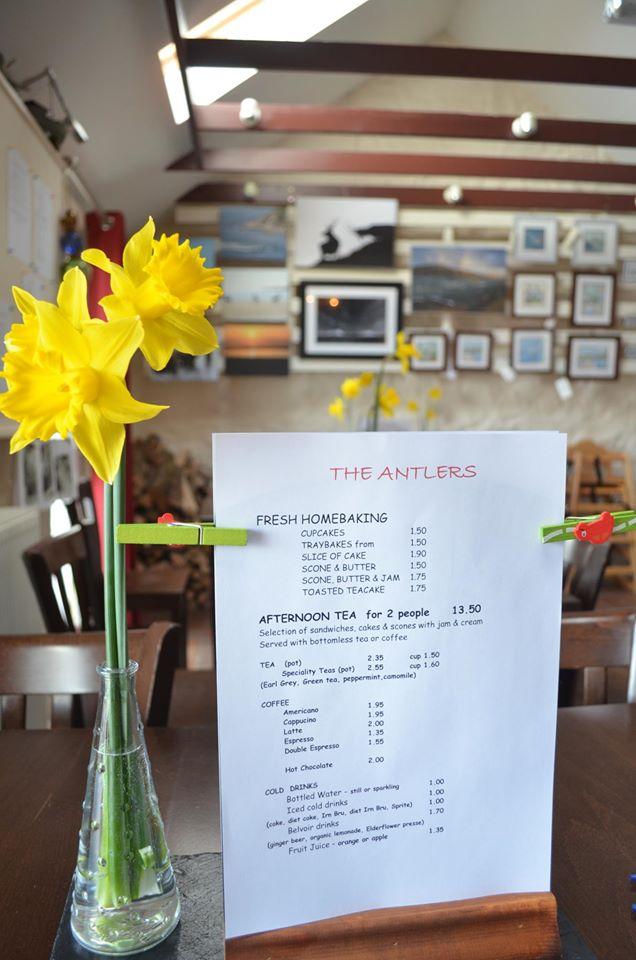 THE ANTLERS
FRESH HOMEBAKING
CUPCAKES 1.50
TRAYBAKES from 1.50
SLICE OF CAKE 1.90
SCONE & BUTTER 1.50
SCONE, BUTTER & JAM 1.75
TOASTED TEACAKE 1.75
AFTERNOON TEA for 2 people 13.50
Selection of sandwiches, cakes & scones with jam & cream
Served with bottomless tea or coffee
TEA (pot) 2.35 cup 1.50
Speciality Teas (pot) 2.55 cup 1.60
(Earl Grey, Green tea, peppermint,camomile)
COFFEE
Americano 1.95
Cappucino 1.95
Latte 2.00
Espresso 1.35
Double Espresso 1.55
Hot Chocolate 2.00
COLD DRINKS
Bottled Water - still or sparkling 1.00
Iced cold drinks 1.00
(coke, diet coke, Irn Bru, diet Irn Bru, Sprite) 1.00
Belvoir drinks 1.70
(ginger beer, organic lemonade, Elderflower presse)
Fruit Juice - orange or apple 1.35